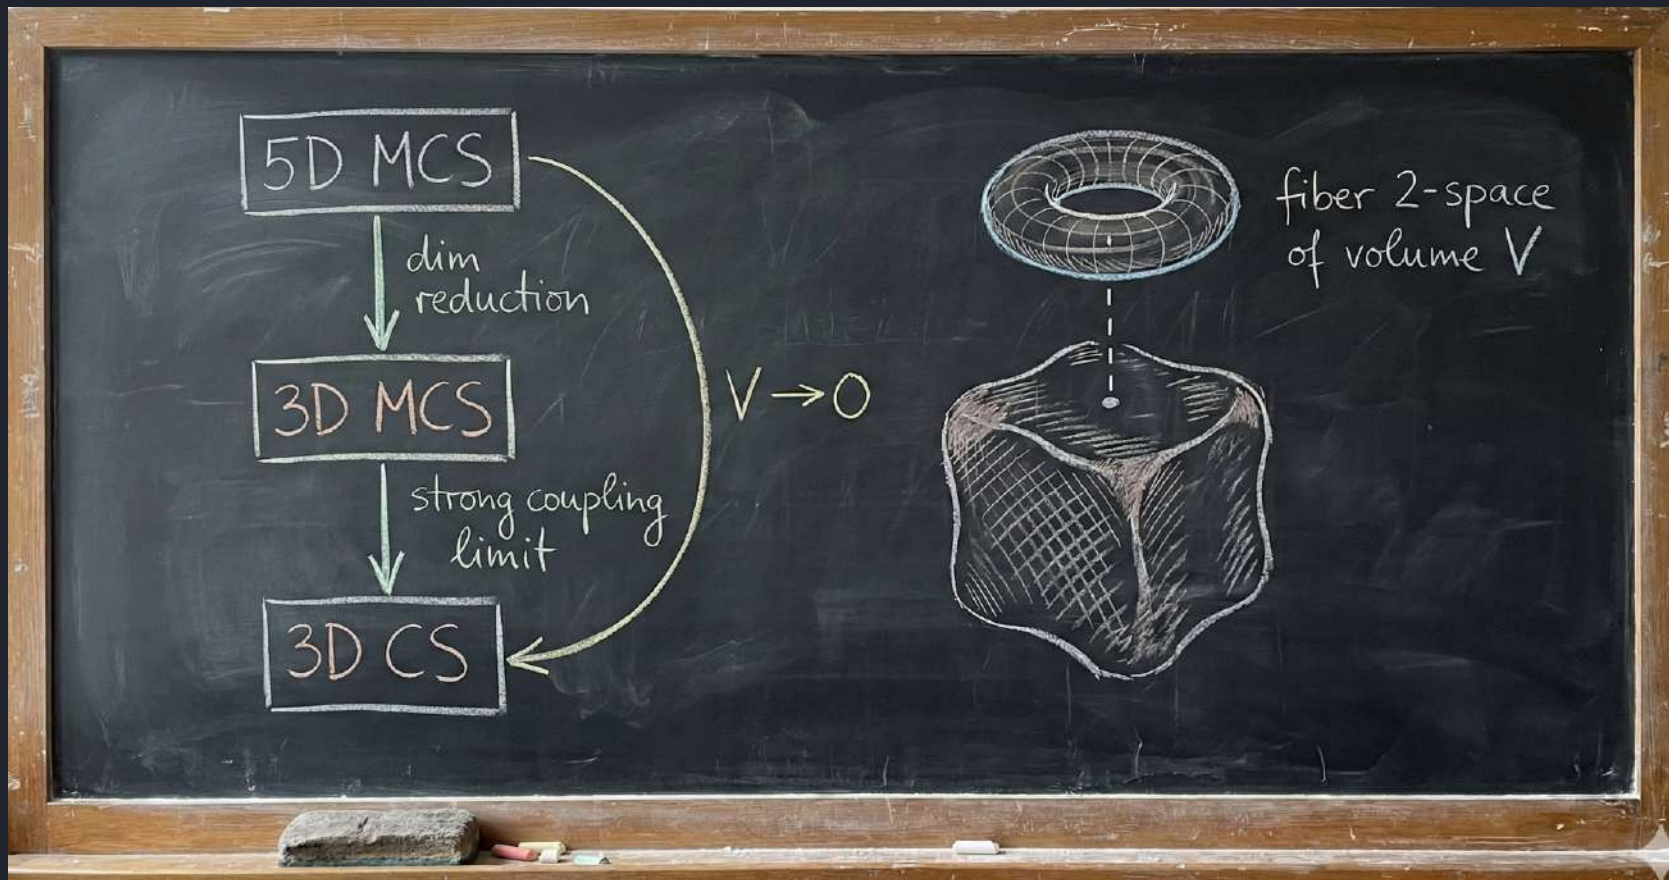 5D MCS
dim
reduction
3D MCS
V → 0
strong coupling
limit
3D CS
fiber 2-space
of volume V